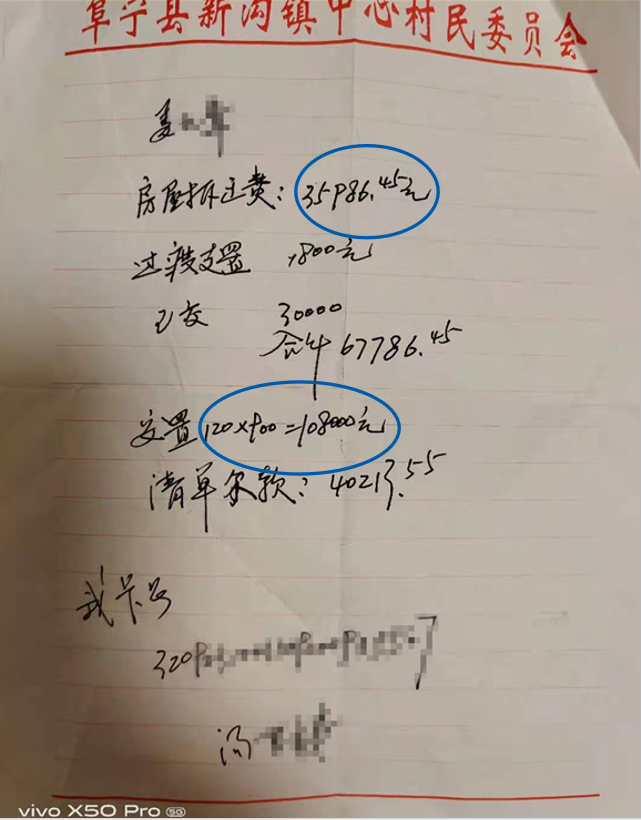 阜宁县新沟镇中心村民委员会
姜
房屋拆迁费：35986.45元
过渡安置 1800元
已交 30000
合计 67786.45
安置 120×900=108000元
清单余款：40213.55
我卡号
320
7
汤
vivo X50 Pro 5G